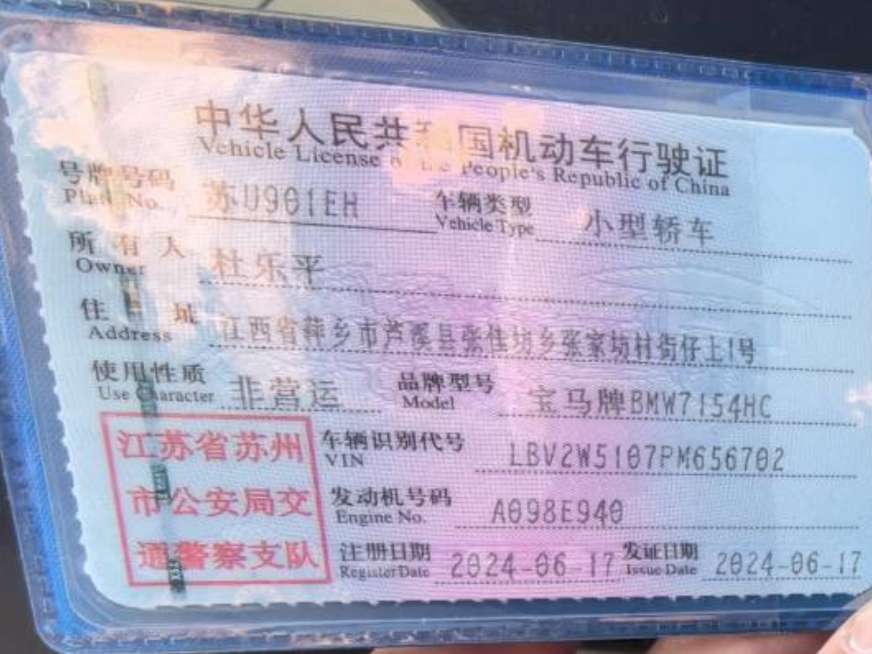 中华人民共和国机动车行驶证
Vehicle License of the People's Republic of China
号牌号码 苏U901EH 车辆类型 小型轿车
Plate No. Vehicle Type
所有人 杜乐平
Owner
住址 江西省萍乡市芦溪县张佳坊乡张家坊村街仔上1号
Address
使用性质 非营运 品牌型号 宝马牌BMW7154HC
Use Character Model
江苏省苏州 车辆识别代号 LBV2W5107PM656702
VIN
市公安局交 发动机号码 A098E940
Engine No.
通警察支队 注册日期 2024-06-17 发证日期 2024-06-17
Register Date Issue Date